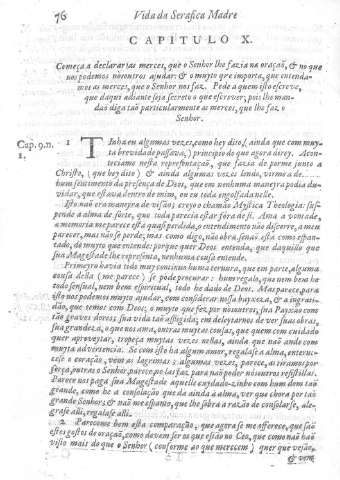 76 Vida da Serafica Madre
CAPITULO X.
Começa a declarar as merces, que o Senhor lhe fazia na oração, & no que
nos podemos nósoutros ajudar: & o muyto que importa, que entenda-
mos as merces, que o Senhor nos faz. Pede a quem isto escreve,
que daqui adiante seja secreto o que escrever; pois lhe man-
daõ diga taõ particularmente as merces, que lhe faz o
Senhor.
Cap. 9. n.
1.
1 Tinha eu algumas vezes, como hey dito, (ainda que com muy-
ta brevidade passava,) principio do que agora direy. Acon-
teciame nesta representação, que fazia de porme junto a
Christo, (que hey dito) & ainda algumas vezes lendo, virme a de-
hum sentimento da presença de Deos, que em nenhuma maneyra podia du-
vidar, que estava dentro de mim, ou eu toda engolfada nelle.
Isto naõ era maneyra de visaõ; creyo o chamaõ Mystica Theologia: sus-
pende a alma de sorte, que toda parecia estar fóra de si. Ama a vontade,
a memoria me parece está quasi perdida, o entendimento naõ discorre, a meu
parecer, mas naõ se perde; mas como digo, naõ obra, senaõ está como espan-
tado, do muyto que entende: porque quer Deos entenda, que daquillo que
sua Magestade lhe representa, nenhuma cousa entende.
Primeyro havia tido muy continuo huma ternura, que em parte, alguma
cousa della (me parece) se póde procurar: hum regalo, que nem bem he
todo sensual, nem bem espiritual, todo he dado de Deos. Mas parece, para
isto nos podemos muyto ajudar, com considerar nossa bayxeza, & a ingrati-
daõ, que temos com Deos; o muyto que fez por nósoutros, sua Payxaõ com
taõ graves dores; sua vida taõ affligida; em deleytarnos de ver suas obras,
sua grandeza, o que nos ama, outras muytas cousas, que quem com cuidado
quer aproveytar, tropeça muytas vezes nellas, ainda que naõ ande com
muyta advertencia. Se com isto ha algum amor, regala-se a alma, enterne-
ce-se o coraçaõ, vem as lagrimas; algumas vezes, parece, as tiramos por
força, outras o Senhor, parece, no las faz, para naõ poder nósoutros resistillas.
Parece nos paga sua Magestade aquelle cuydado-zinho com hum dom taõ
grande, como he a consolaçaõ que dá a huma alma, ver que chora por taõ
grande Senhor; & naõ me espanto, que lhe sobra a razaõ de consolarse, ale-
grase alli, regalase alli.
2 Pareceme bem esta comparaçaõ, que agora se me offerece, que saõ
estes gostos de oraçaõ, como devem ser os que estaõ no Ceo, que como naõ haõ
visto mais do que o Senhor (conforme ao que merecem) quer que vejaõ,
& vem